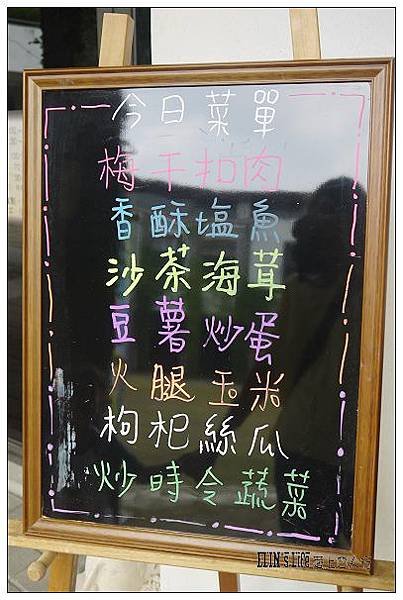 今日菜單
梅干扣肉
香酥塩魚
沙茶海茸
豆薯炒蛋
火腿玉米
枸杞絲瓜
炒時令蔬菜
ELIN's Life